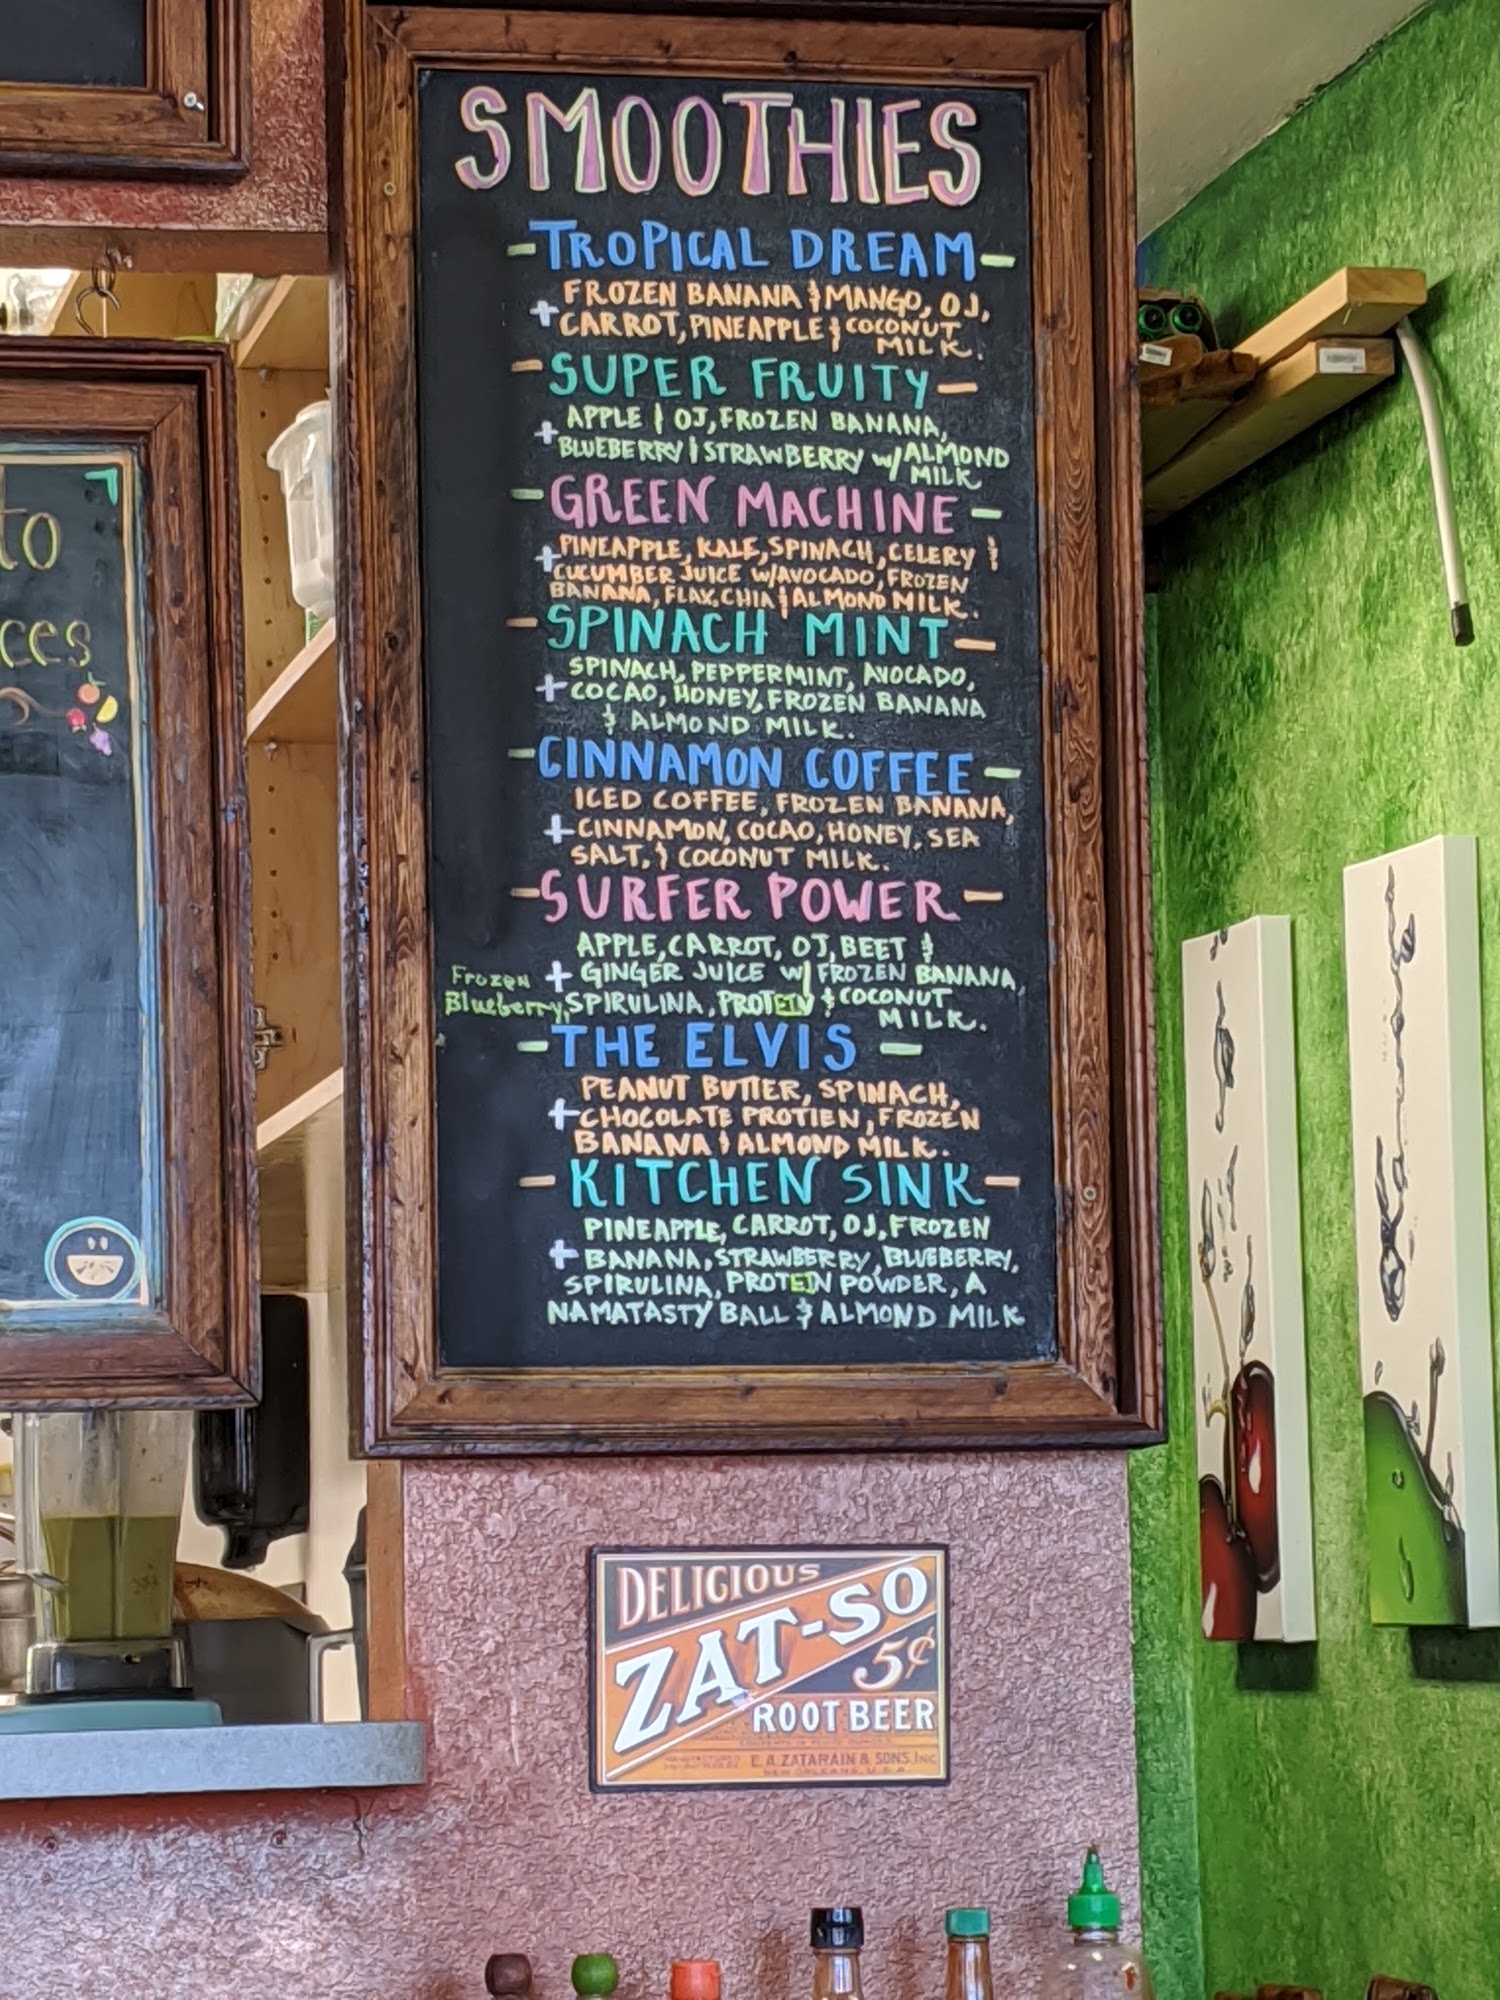 SMOOTHIES
-TROPICAL DREAM-
+ FROZEN BANANA & MANGO, OJ,
CARROT, PINEAPPLE & COCONUT
MILK.
-SUPER FRUITY-
+ APPLE & OJ, FROZEN BANANA,
BLUEBERRY & STRAWBERRY w/ ALMOND
MILK
-GREEN MACHINE-
+ PINEAPPLE, KALE, SPINACH, CELERY &
CUCUMBER JUICE W/AVOCADO, FROZEN
BANANA, FLAX, CHIA & ALMOND MILK.
-SPINACH MINT-
SPINACH, PEPPERMINT, AVOCADO,
+ COCAO, HONEY, FROZEN BANANA
& ALMOND MILK.
-CINNAMON COFFEE-
ICED COFFEE, FROZEN BANANA,
+ CINNAMON, COCAO, HONEY, SEA
SALT, & COCONUT MILK.
-SURFER POWER-
APPLE, CARROT, OJ, BEET &
+ GINGER JUICE w/ FROZEN BANANA,
Frozen
Blueberry, SPIRULINA, PROTEIN & COCONUT
MILK.
-THE ELVIS-
PEANUT BUTTER, SPINACH,
+ CHOCOLATE PROTIEN, FROZEN
BANANA & ALMOND MILK.
-KITCHEN SINK-
PINEAPPLE, CARROT, OJ, FROZEN
+ BANANA, STRAWBERRY, BLUEBERRY,
SPIRULINA, PROTEIN POWDER, A
NAMATASTY BALL & ALMOND MILK
to
ces
DELICIOUS
ZAT-SO
5¢
ROOT BEER
E.A. ZATARAIN & SONS, INC.
NEW ORLEANS, U.S.A.